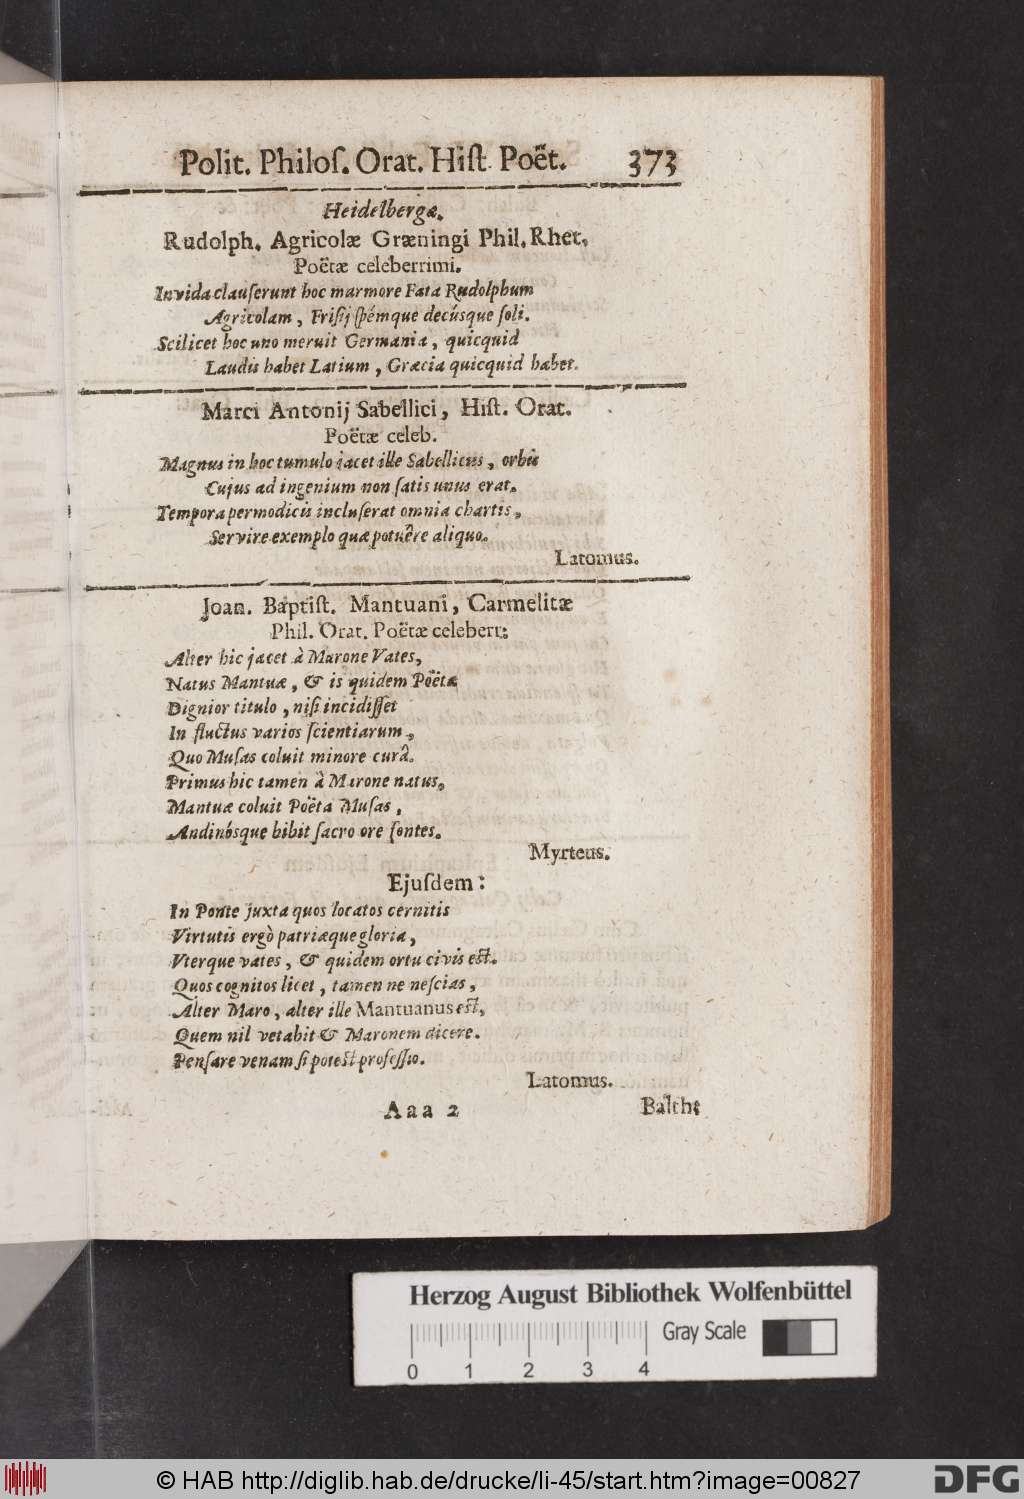 Polit. Philoſ. Orat. Hiſt. Poët. 373
Heidelbergæ.
Rudolph. Agricolæ Græningi Phil. Rhet.
Poëtæ celeberrimi.
Invida clauſerunt hoc marmore Fata Rudolphum
Agricolam, Friſij ſpémque decúsque ſoli.
Scilicet hoc uno meruit Germania, quicquid
Laudis habet Latium, Græcia quicquid habet.
Marci Antonij Sabellici, Hiſt. Orat.
Poëtæ celeb.
Magnus in hoc tumulo jacet ille Sabellicus, orbis
Cujus ad ingenium non ſatis unus erat.
Tempora permodicis incluſerat omnia chartis,
Servire exemplo quæ potuêre aliquo.
Latomus.
Joan. Baptiſt. Mantuani, Carmelitæ
Phil. Orat. Poëtæ celeberr:
Alter hic jacet à Marone Vates,
Natus Mantuæ, & is quidem Poëta
Dignior titulo, niſi incidiſſet
In fluctus varios ſcientiarum,
Quo Muſas coluit minore curâ.
Primus hic tamen à Marone natus,
Mantuæ coluit Poëta Muſas,
Andinósque bibit ſacro ore fontes.
Myrteus.
Ejuſdem:
In Ponte juxta quos locatos cernitis
Virtutis ergò patriæque gloria,
Vterque vates, & quidem ortu civis eſt.
Quos cognitos licet, tamen ne neſcias,
Alter Maro, alter ille Mantuanus eſt,
Quem nil vetabit & Maronem dicere.
Penſare venam ſi poteſt profeſſio.
Latomus.
Aaa 2 Balth:
Herzog August Bibliothek Wolfenbüttel
Gray Scale
0 1 2 3 4
© HAB http://diglib.hab.de/drucke/li-45/start.htm?image=00827
DFG